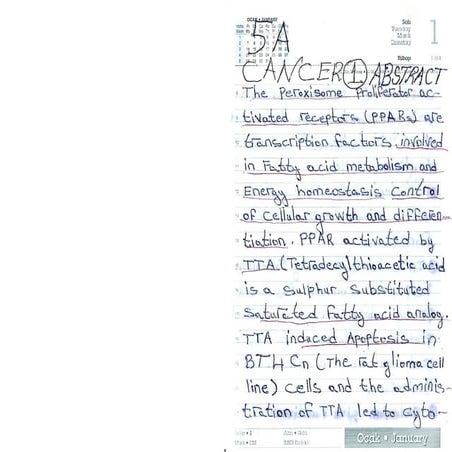 OCAK • JANUARY
Salı
Tuesday
1
5A
CANCER ① ABSTRACT
The Peroxisome Proliferator ac-
tivated receptors (PPARs) are
transcription factors involved
in Fatty acid metabolism and
Energy homeostasis control
of cellular growth and differen
tiation. PPAR activated by
TTA (Tetradecylthioacetic acid
is a sulphur substituted
saturated fatty acid analog.
TTA induced Apoptosis in
BT4Cn (The rat glioma cell
line) cells and the adminis-
tration of TTA led to cyto-
Ocak • January